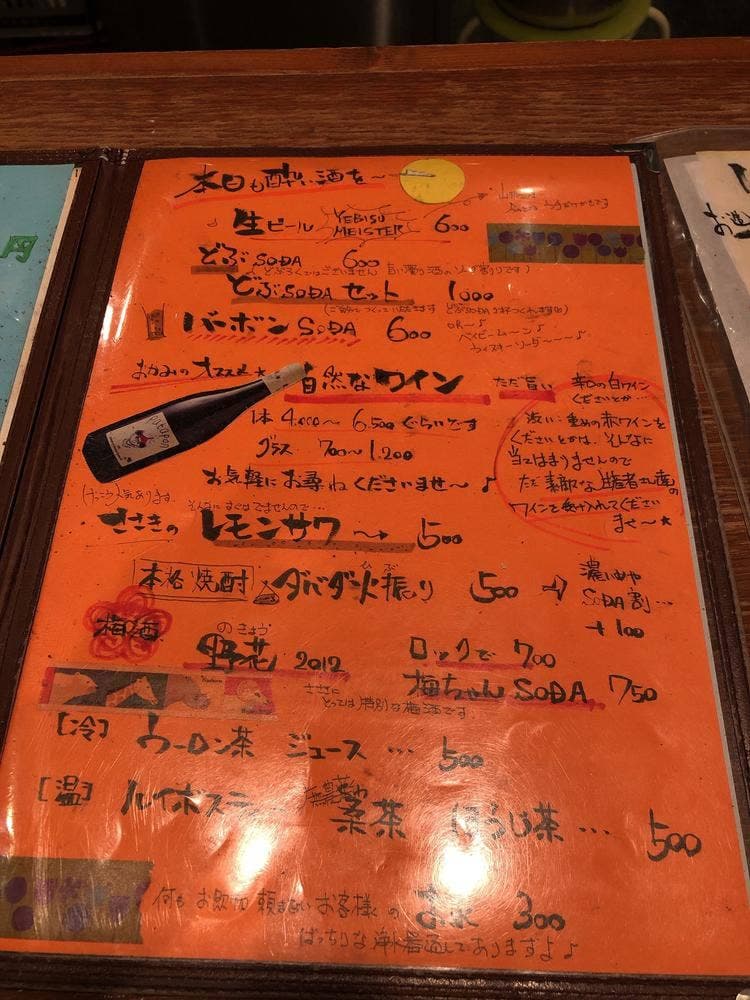 本日も酔い酒を〜
生ビール YEBISU MEISTER 600
どぶSODA 600
(どぶろくではございません 白い濁り酒のソーダ割りです)
どぶSODAセット 1000
バーボンSODA 600
OR〜♪
おかみのオススメ★ 自然なワイン ただ旨い
1本 4.000〜6.500ぐらいです
グラス 700〜1.200
お気軽にお尋ねくださいませ〜♪
辛口の白ワイン
くださいとか…
渋い・重めの赤ワインを
くださいとかは、そんなに
当てはまりませんので
ただ素敵な生産者さん達の
ワインを受け入れてください
ませ〜★
(けっこう人気あります
ささきの レモンサワー 500
本格焼酎 ダバダ火振り 500
ひぶ
濃いめや
SODA割…
+100
梅酒
のきょう
野花 2012 ロックで 700
梅ちゃんSODA 750
ささきに
とっては特別な梅酒です
[冷] ウーロン茶 ジュース … 500
[温] ルイボスティー 桑茶 ほうじ茶 … 500
何もお飲物頼まないお客様の お水 300
ばっちりな浄水器通してありますよ♪
円
お造